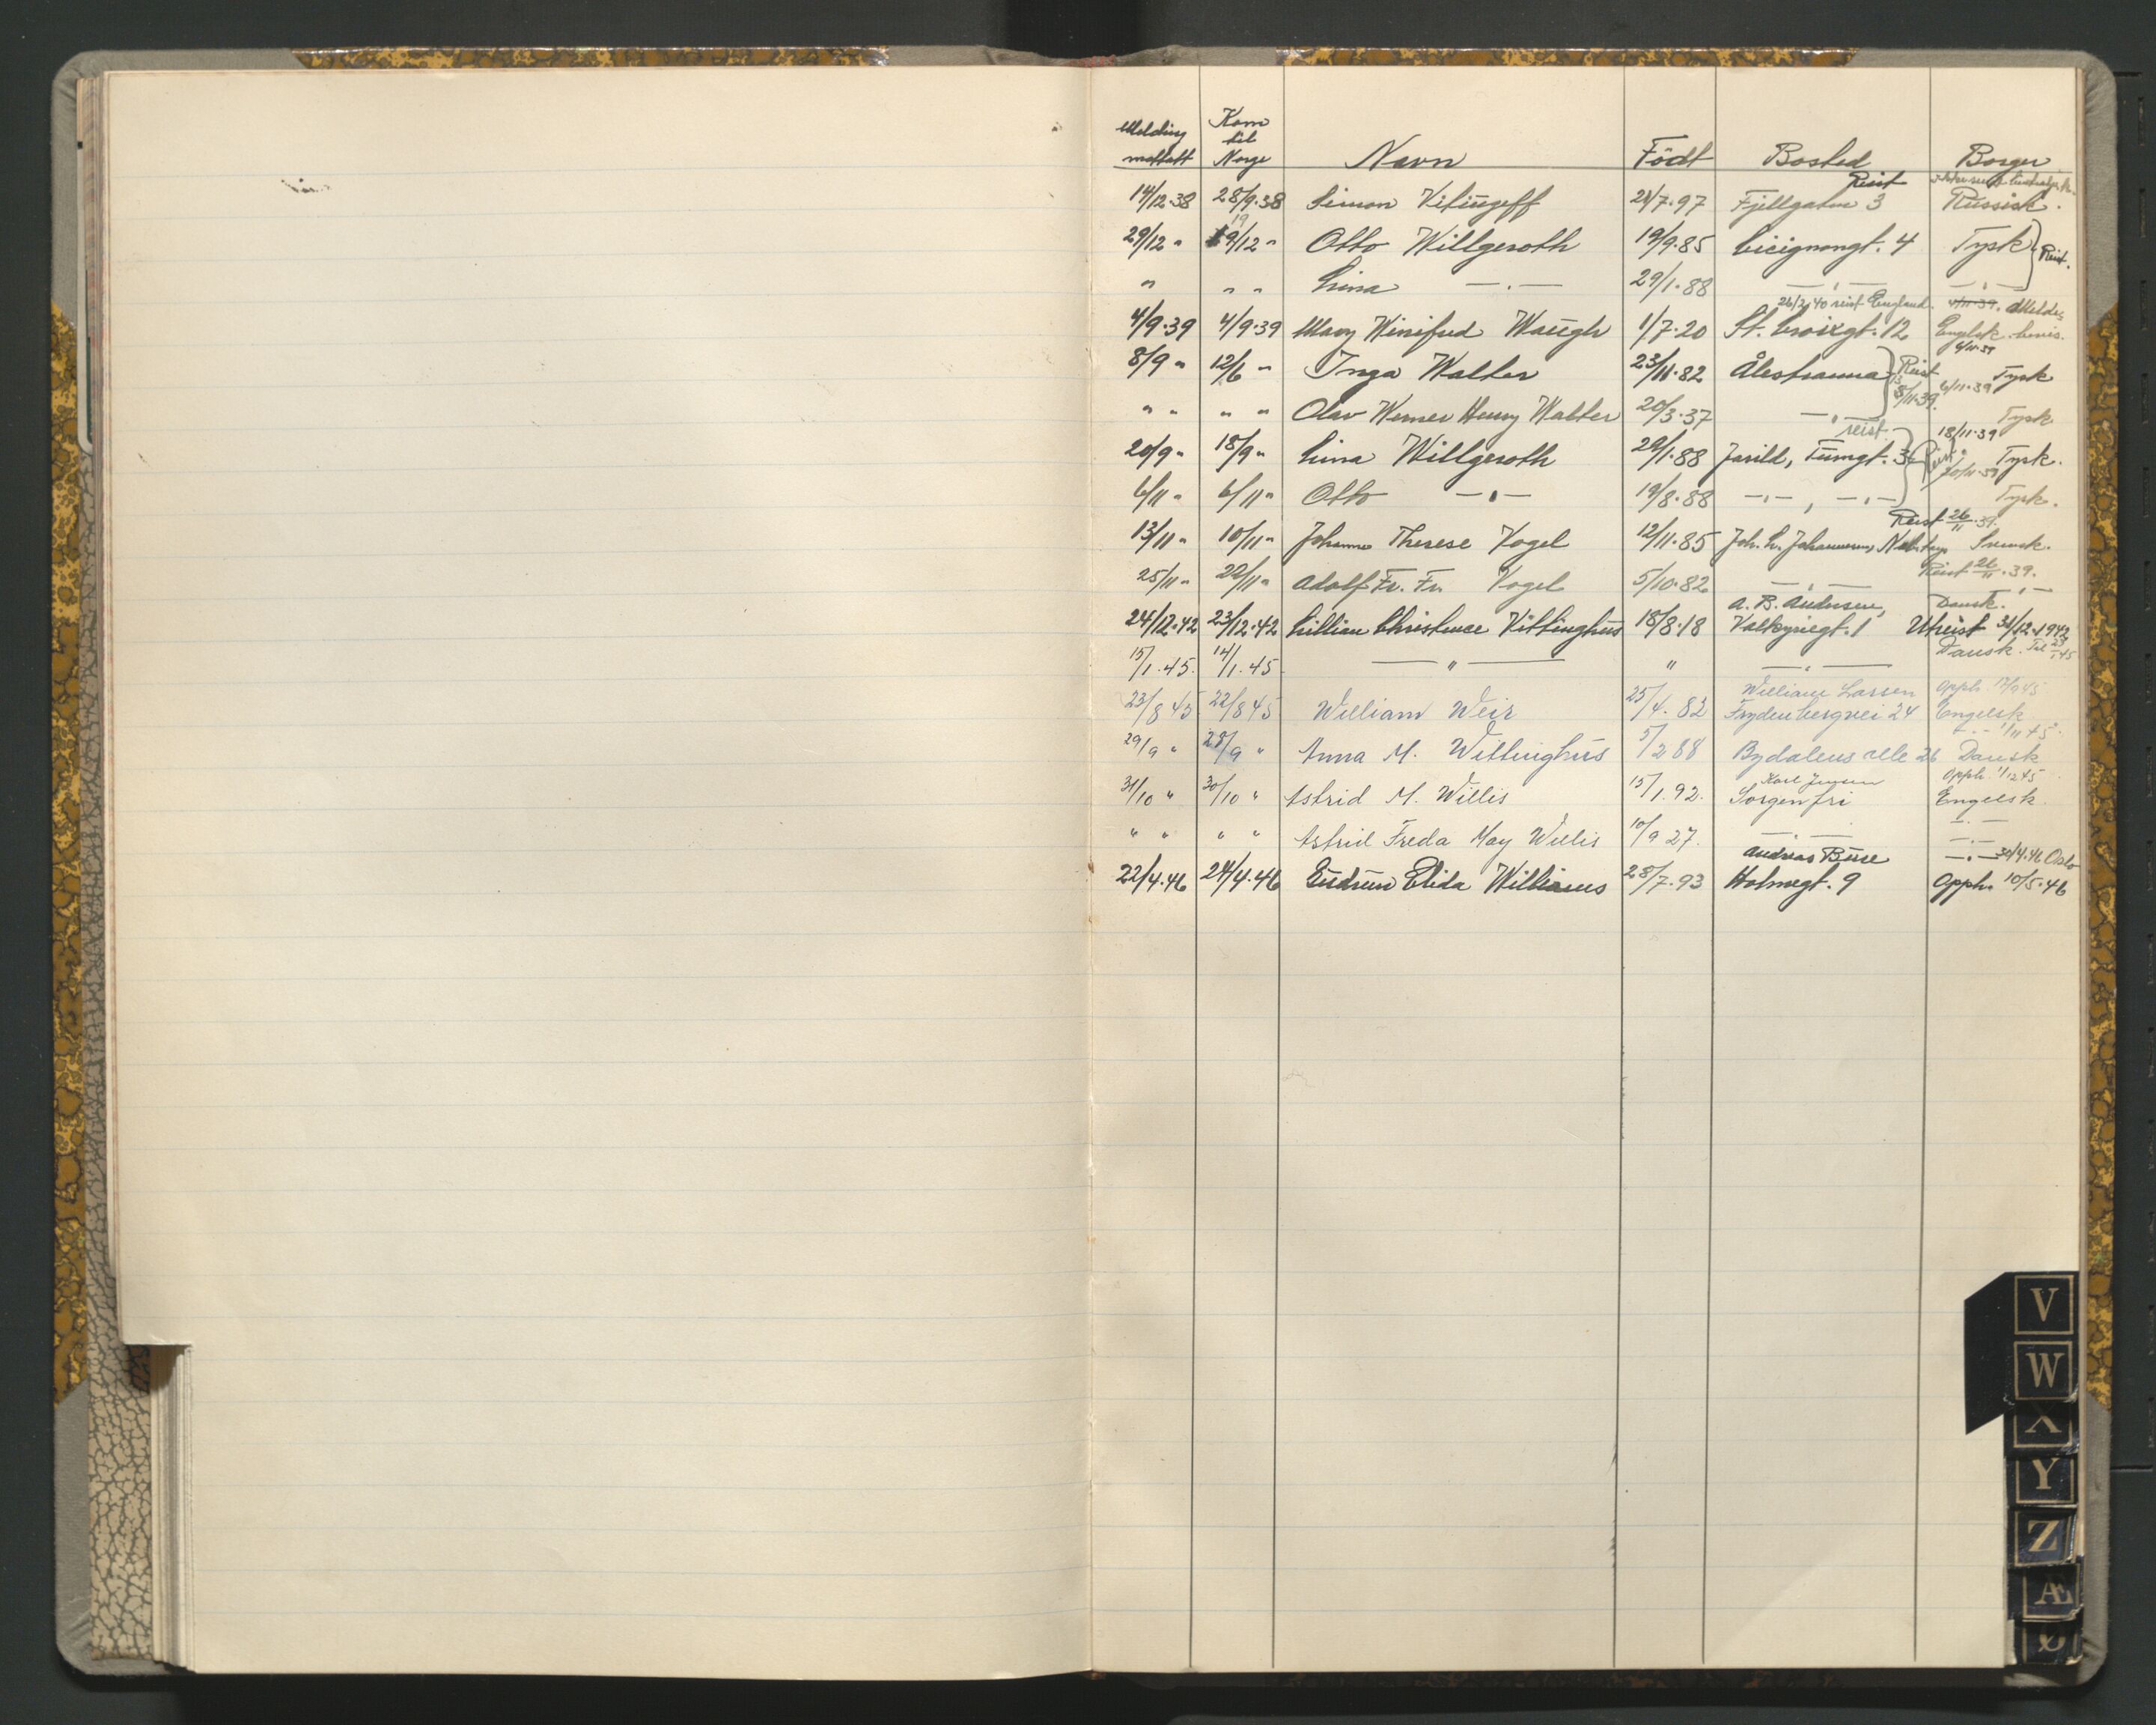 Melding mottatt | Kom til Norge | Navn | Födt | Bosted | Borger
Reist
14/12.38 28/9.38 Simon Vitiugeff 21/7.97 Fjellgaten 3 Russisk.
19
29/12 " 19/12 " Otto Willgeroth 19/9.85 Cicignongt. 4 Tysk } Reist.
" " " Lina —.— 29/1.88 —.— —.—
26/2.40 reist England. 4/11.39.
4/9.39 4/9.39 Mary Winifred Waugh 1/7.20 St. Croixgt. 12 Engelsk
6/11.39
8/9 " 12/6 " Inga Walter 23/11.82 Ålestranna } Reist 13/11.39. 6/11.39 Tysk
" " " " Olav Werner Henry Walter 20/3.37 —.— Tysk
reist. 18/11.39
20/9 " 18/9 " Lina Willgeroth 29/1.88 Jarild, Turngt. 36 } Reist 20/11.39 Tysk.
6/11 " 6/11 " Otto —.— 19/8.88 —.— , —.— Tysk.
Reist 26/11.39.
13/11 " 10/11 " Johanne Therese Vogel 12/11.85 Joh. L. Johannesen, Svensk.
Reist 26/11.39.
25/11 " 22/11 " Adolf Fr. Fr. Vogel 5/10.82 —.— —.—
A. B. Andersen, Dansk.
24/12.42 23/12.42 Lillian Christence Vittinghus 18/8.18 Valkyriegt. 1 Utreist 31/12.1942
15/1.45. 14/1.45 — " — " —.— Dansk. Til 23/1 45
William Larsen Opph. 12/9 45
23/8 45 22/8 45 William Weir 25/4. 82 Frydenbergvei 24 Engelsk
1/11 45
29/9 " 28/9 " Anna M. Wittinghus 5/2 88 Bydalens alle 26 Dansk
Karl Jensen Opph. 1/12 45
31/10 " 30/10 " Astrid M. Willis 15/1.92. Sorgenfri Engelsk
" " " " Astrid Freda May Willis 10/9 27. —.— —.—
Andreas Buse —.— 30/4.46 Oslo
22/4.46 24/4.46 Gudrun Elida Williams 28/7.93 Holmegt. 9 Opph. 10/5.46
V
W
X
Y
Z
Æ
Ø